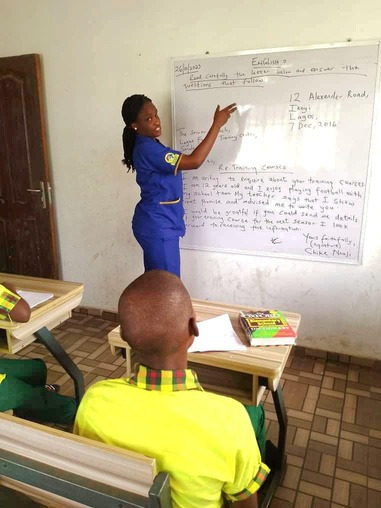 English
Read carefully the letter below and answer the
questions that follow
12 Alexander Road,
Ikoyi
Lagos,
7 Dec, 2016
Re: Training Courses
writing to enquire about your training courses
I am 12 years old and I enjoy playing football with
my school team. My teacher says that I show
and advised me to write you
would be grateful if you could send me details
your training course for the next season. I look
to receiving the information.
Yours faithfully,
(signature)